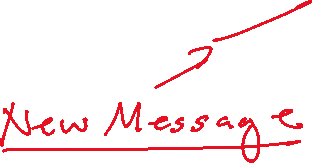 New Message